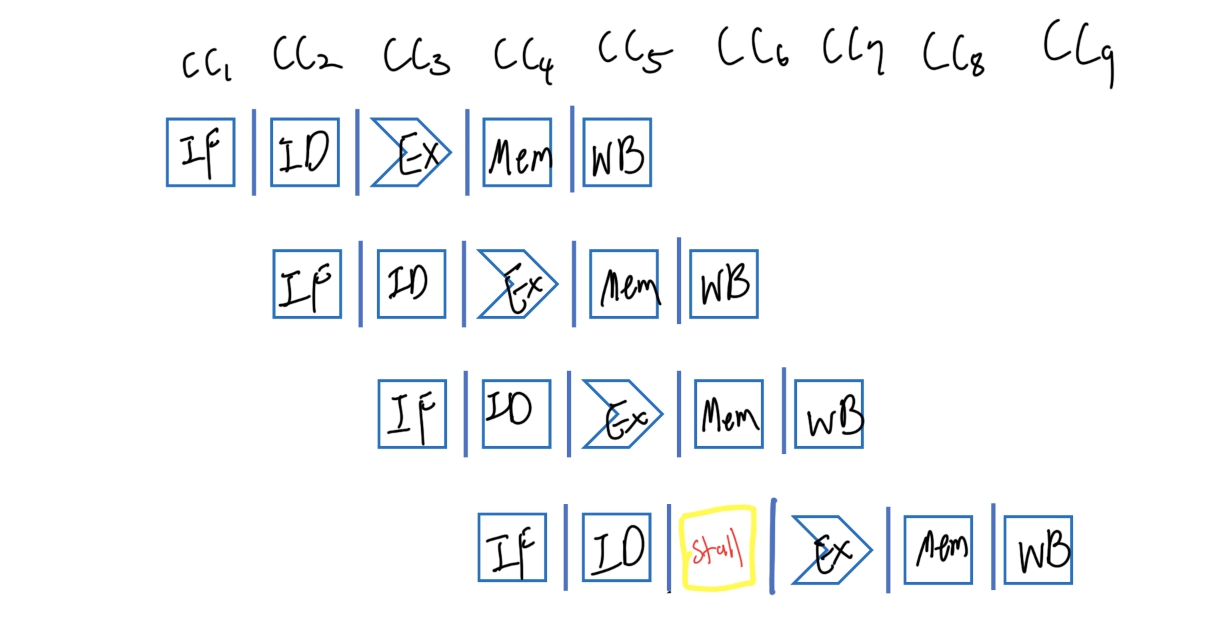 CC1 CC2 CC3 CC4 CC5 CC6 CC7 CC8 CC9
IF ID Ex Mem WB
IF ID Ex Mem WB
IF ID Ex Mem WB
IF ID Stall Ex Mem WB